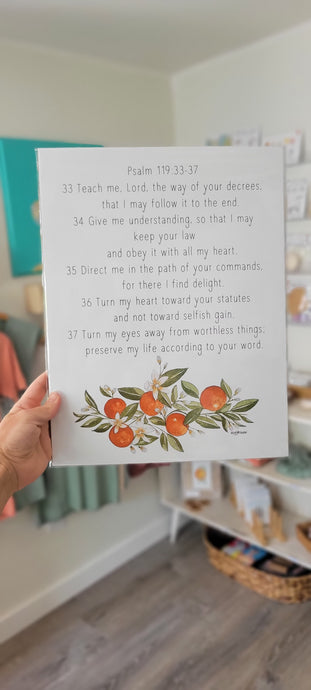 Psalm 119:33-37
33 Teach me, Lord, the way of your decrees,
that I may follow it to the end.
34 Give me understanding, so that I may
keep your law
and obey it with all my heart.
35 Direct me in the path of your commands,
for there I find delight.
36 Turn my heart toward your statutes
and not toward selfish gain.
37 Turn my eyes away from worthless things,
preserve my life according to your word.